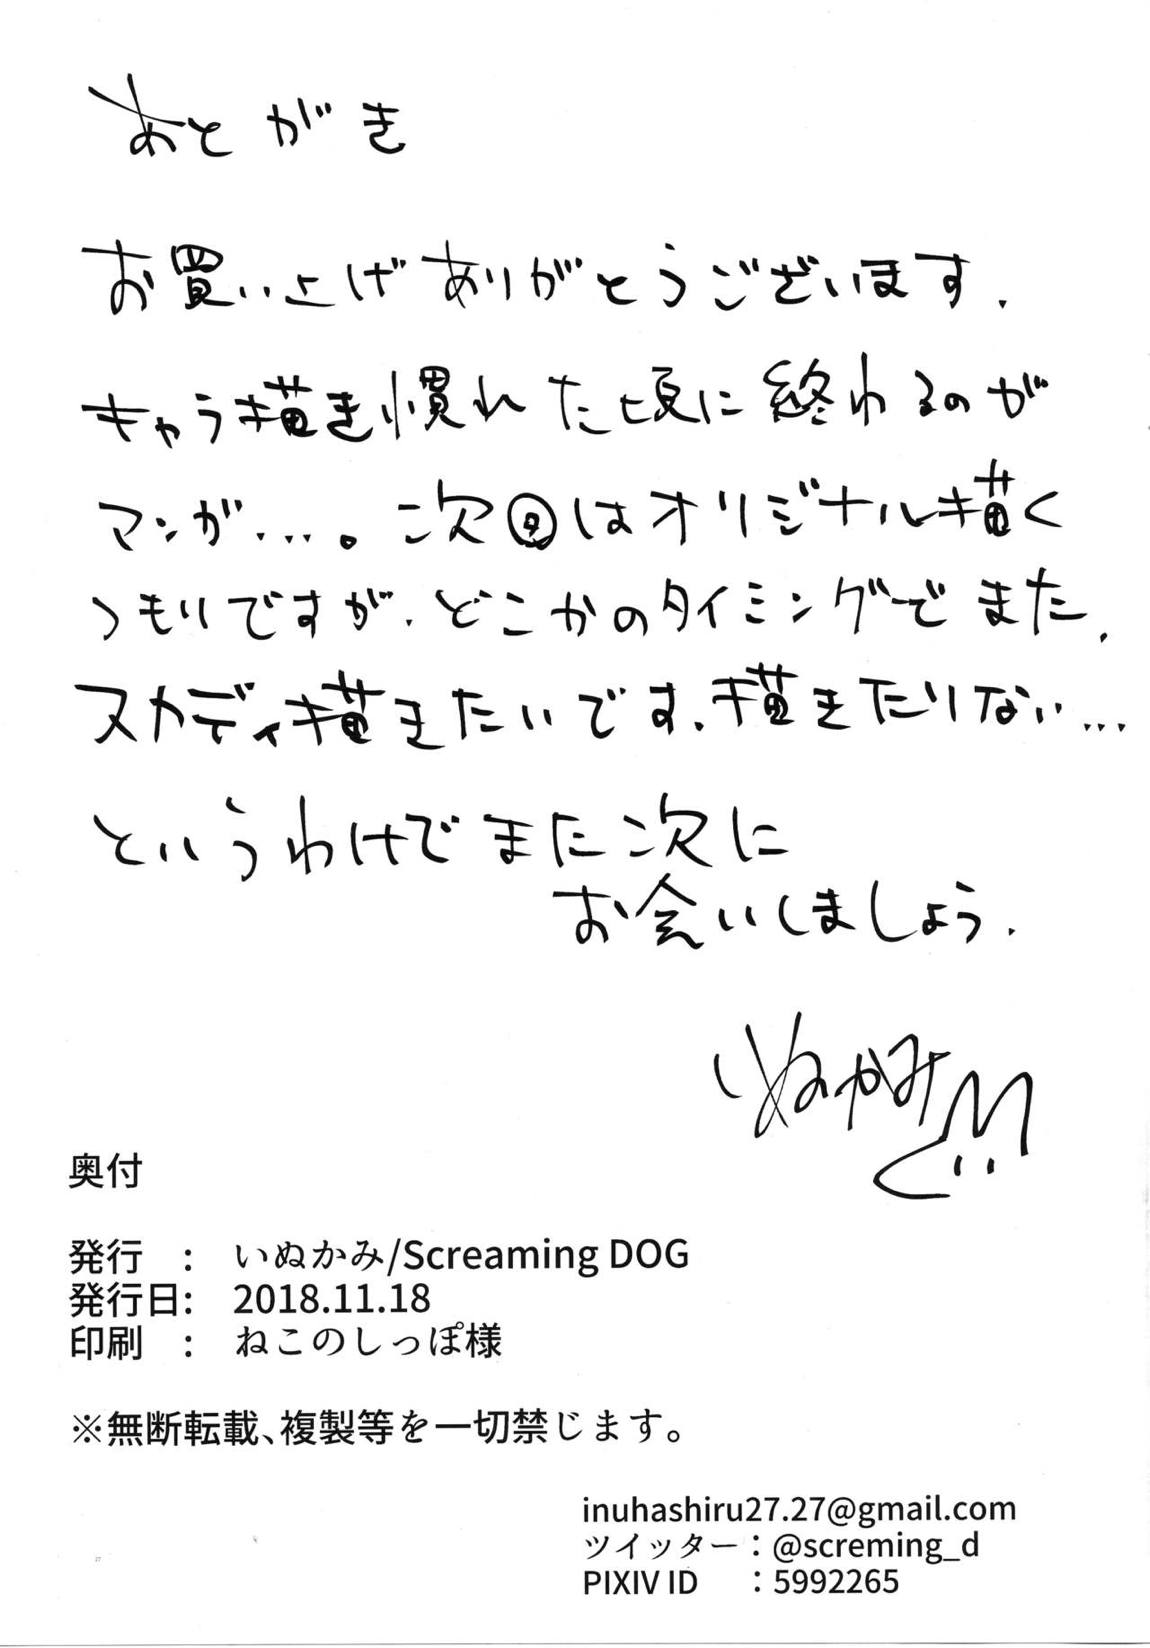 あとがき
お買い上げありがとうございます.
キャラ描き慣れた頃に終わるのが
マンガ….。次回はオリジナル描く
つもりですが.どこかのタイミングでまた.
スカディ描きたいです.描きたりない…
というわけでまた次に
お会いしましょう.
いぬかみ
奥付
発行　:　いぬかみ/Screaming DOG
発行日:　2018.11.18
印刷　:　ねこのしっぽ様
※無断転載、複製等を一切禁じます。
inuhashiru27.27@gmail.com
ツイッター：@screming_d
PIXIV ID　：5992265